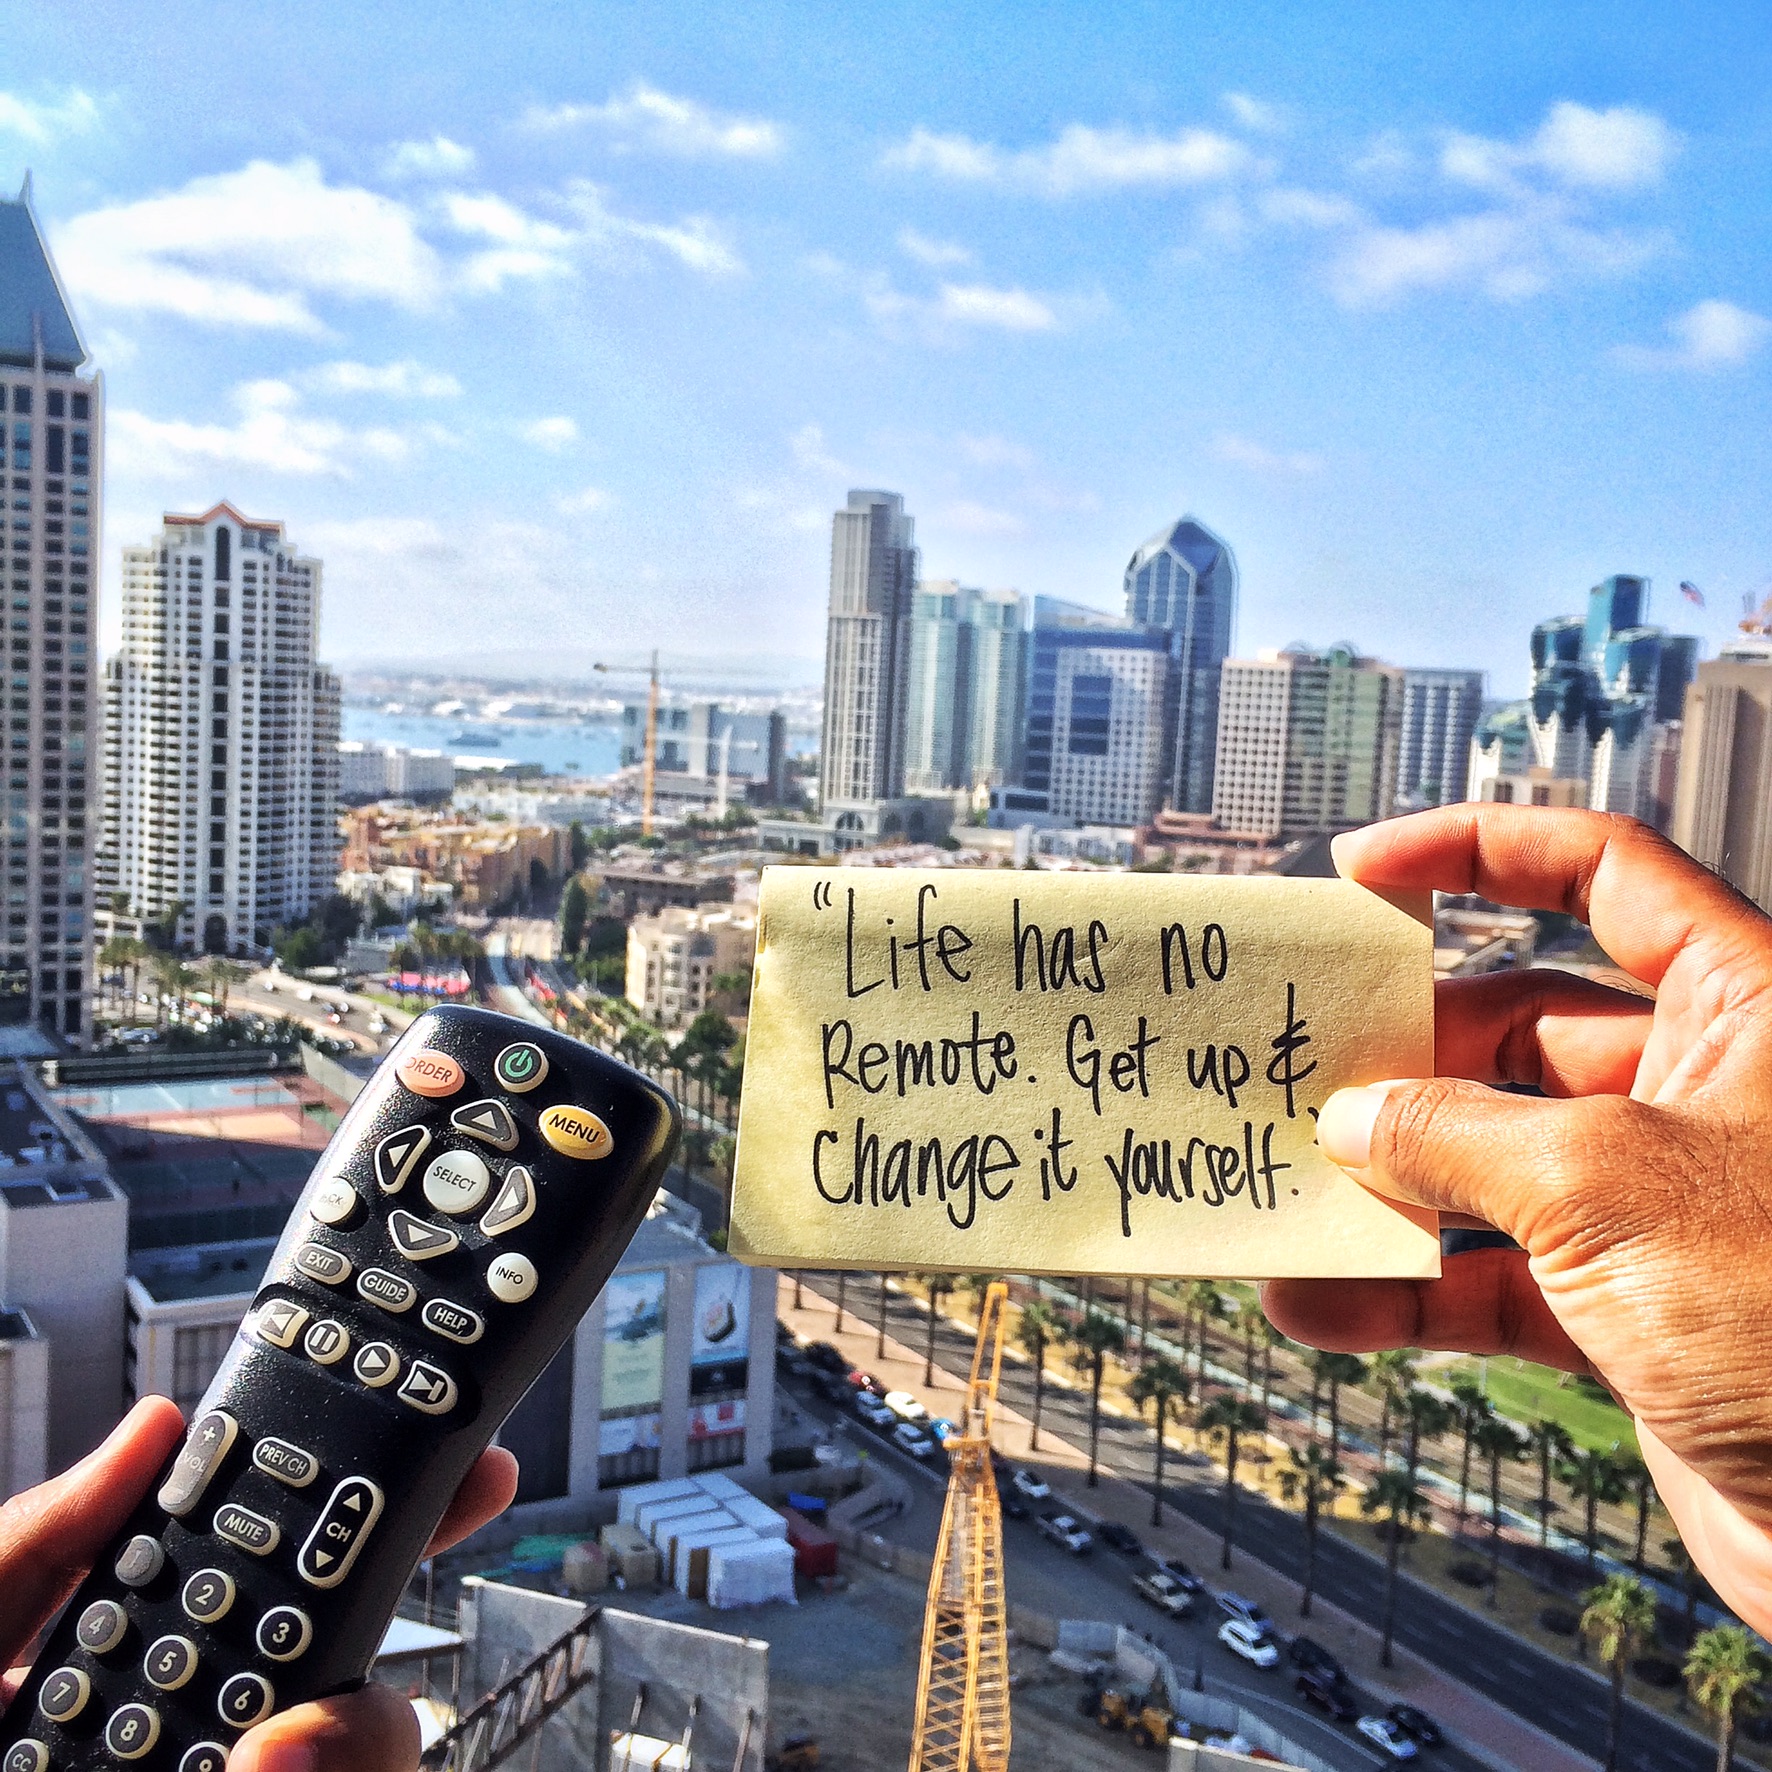 “Life has no
Remote. Get up &
change it yourself.”
ORDER
MENU
SELECT
EXIT
GUIDE
INFO
HELP
+
VOL
PREV CH
MUTE
CH
2
3
4
5
6
7
8
9
CC